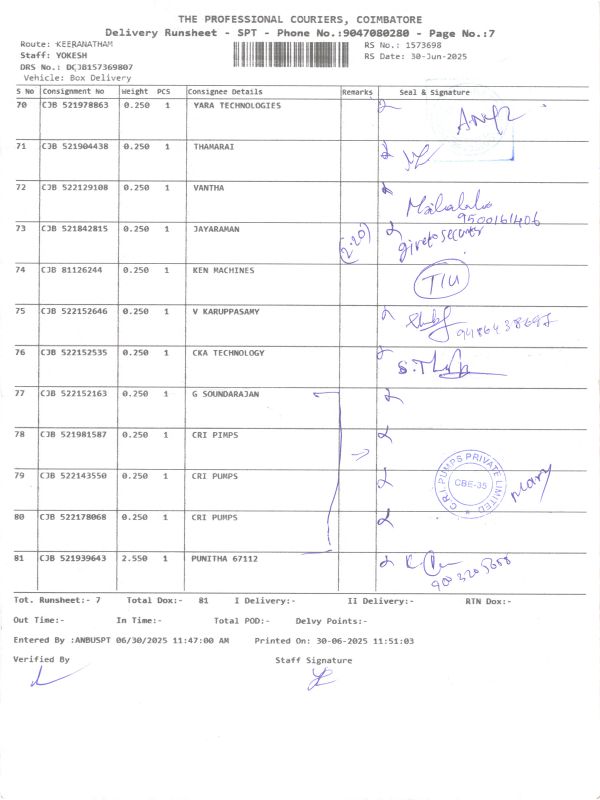 THE PROFESSIONAL COURIERS, COIMBATORE
Delivery Runsheet - SPT - Phone No.:9047080280 - Page No.:7
Route: KEERANATHAM RS No.: 1573698
Staff: YOKESH RS Date: 30-Jun-2025
DRS No.: DCJB157369807
Vehicle: Box Delivery
S No Consignment No Weight PCS Consignee Details Remarks Seal & Signature
70 CJB 521978863 0.250 1 YARA TECHNOLOGIES
71 CJB 521904438 0.250 1 THAMARAI
72 CJB 522129108 0.250 1 VANTHA
9500161406
73 CJB 521842815 0.250 1 JAYARAMAN (2.20)
74 CJB 81126244 0.250 1 KEN MACHINES TIU
75 CJB 522152646 0.250 1 V KARUPPASAMY
76 CJB 522152535 0.250 1 CKA TECHNOLOGY
77 CJB 522152163 0.250 1 G SOUNDARAJAN
78 CJB 521981587 0.250 1 CRI PIMPS
79 CJB 522143550 0.250 1 CRI PUMPS C.R.I. PUMPS PRIVATE LIMITED CBE-35
80 CJB 522178068 0.250 1 CRI PUMPS
81 CJB 521939643 2.550 1 PUNITHA 67112
Tot. Runsheet:- 7 Total Dox:- 81 I Delivery:- II Delivery:- RTN Dox:-
Out Time:- In Time:- Total POD:- Delvy Points:-
Entered By :ANBUSPT 06/30/2025 11:47:00 AM Printed On: 30-06-2025 11:51:03
Verified By Staff Signature